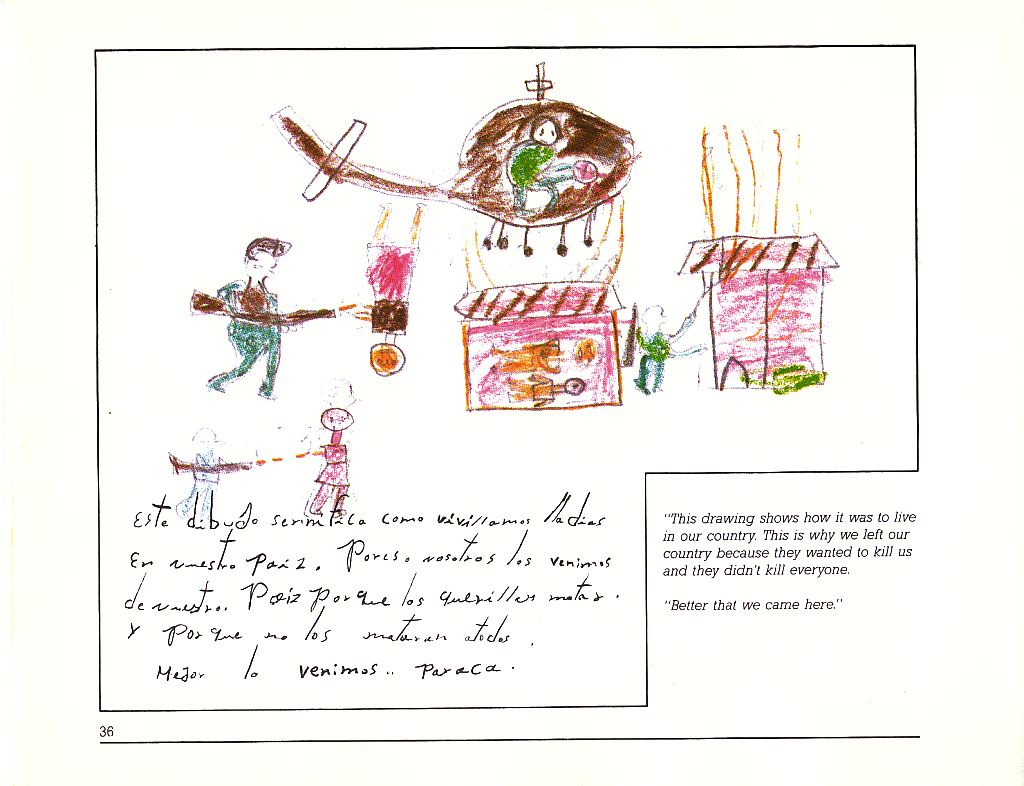 Este dibujo sernifica como vivillamos lladias
En nuestro Paiz. Poreso nosotros los venimos
de nuestro. Paiz Porque los querillan matar.
Y Porque no los mataran atodos.
Mejor lo venimos.. Paraca.
"This drawing shows how it was to live
in our country. This is why we left our
country because they wanted to kill us
and they didn't kill everyone.
"Better that we came here."
36